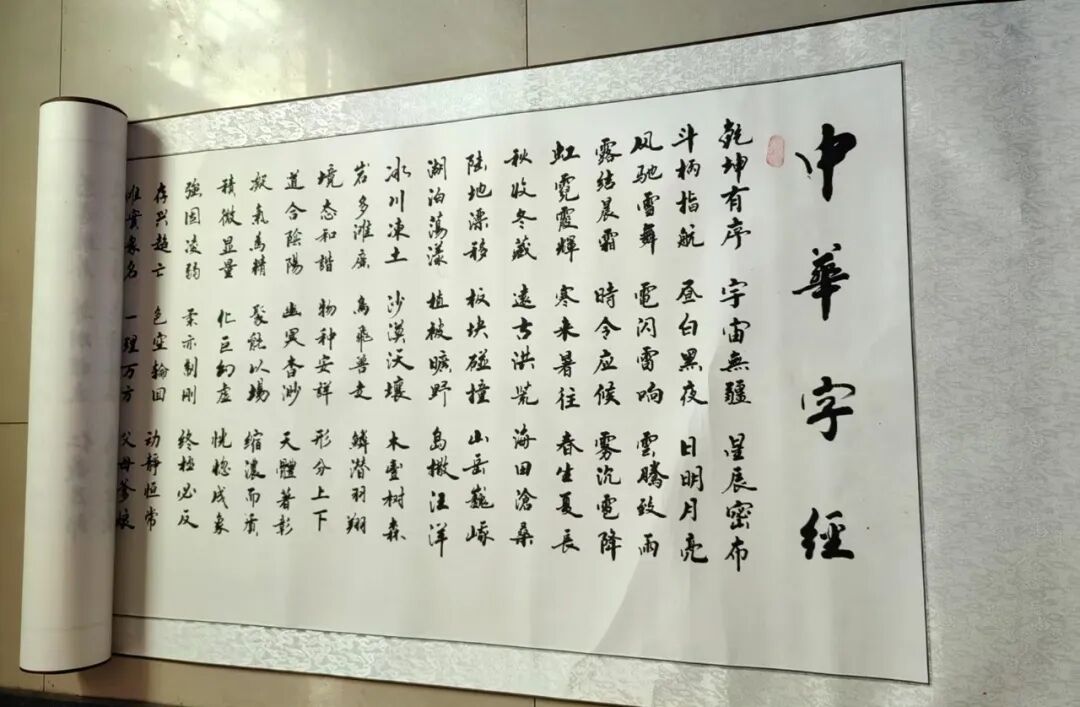 中華字經
乾坤有序 宇宙無疆 星辰密布
斗柄指航 昼白黑夜 日明月亮
风驰雪舞 電闪雷响 雲騰致雨
露结晨霜 時令应候 雾沉雹降
虹霓霞輝 寒来暑往 春生夏長
秋收冬藏 遠古洪荒 海田滄桑
陆地漂移 板块碰撞 山岳巍峨
湖泊蕩漾 植被曠野 島撒汪洋
冰川凍土 沙漠沃壤 木豐树森
岩多滩廣 鳥飛兽走 鱗潜羽翔
境态和諧 物种安詳 形分上下
道合陰陽 幽冥杳渺 天體著彰
凝氣為精 聚能以場 缩濃而質
積微显量 化巨幻虚 恍惚成象
強固凌弱 柔亦制剛 终極必反
存兴趋亡 色空輪回 动静恒常
唯實名 一理万方 父母爹娘